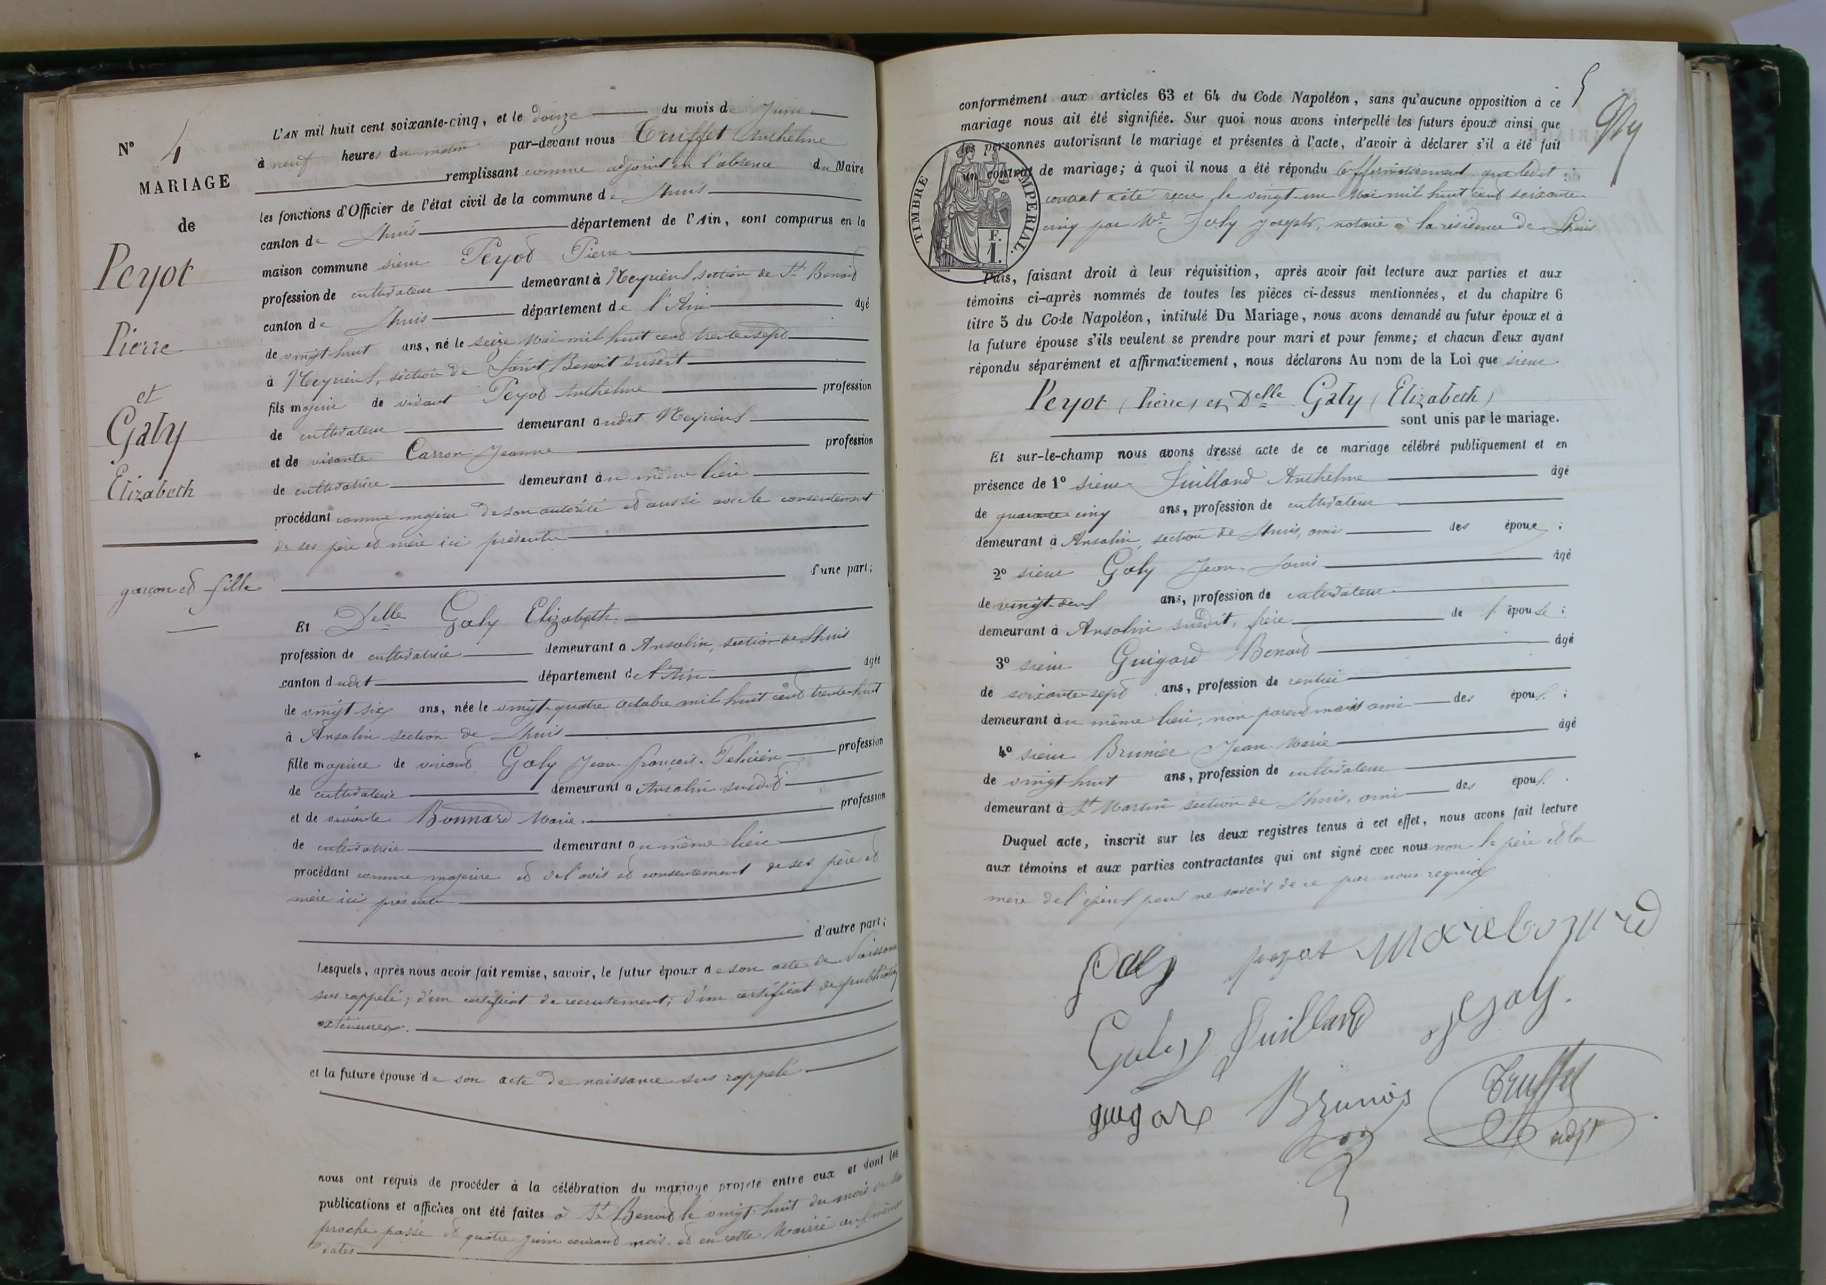 N° 4
MARIAGE
de
Peyot
Pierre
et
Galy
Elizabeth
garçon et fille
L'AN mil huit cent soixante-cinq, et le douze du mois de Juin
à neuf heures du matin par-devant nous Truffet Anthelme
remplissant comme adjoint en l'absence du Maire
les fonctions d'Officier de l'état civil de la commune de Lhuis
canton de Lhuis département de l'Ain, sont comparus en la
maison commune sieur Peyot Pierre
profession de cultivateur demeurant à Meyrieu, section de St Benoit
canton de Lhuis département de l'Ain âgé
de vingt huit ans, né le seize Mai mil huit cent trente-sept
à Meyrieu, section de Saint Benoit susdit
fils majeur de vivant Peyot Anthelme profession
de cultivateur demeurant audit Meyrieu
et de vivante Carron Jeanne profession
de cultivatrice demeurant au même lieu
procédant comme majeur de son autorité et aussi avec le consentement
de ses père et mère ici présents
d'une part;
Et Delle Galy Elizabeth
profession de cultivatrice demeurant à Ansolin, section de Lhuis
canton dudit département de l'Ain âgée
de vingt-six ans, née le vingt-quatre octobre mil huit cent trente-huit
à Ansolin section de Lhuis
fille majeure de vivant Galy Jean-françois-Félicien profession
de cultivateur demeurant à Ansolin susdit
et de vivante Bonnard Marie profession
de cultivatrice demeurant au même lieu
procédant comme majeure et de l'avis et consentement de ses père et
mère ici présents
d'autre part;
Lesquels, après nous avoir fait remise, savoir, le futur époux de son acte de Naissance
sus rappelé; d'un certificat de recrutement; d'un certificat de publications
extérieures.
et la future épouse de son acte de naissance sus rappelé
nous ont requis de procéder à la célébration du mariage projeté entre eux et dont les
publications et affiches ont été faites à St Benoit le vingt-huit du mois de Mai
proche passé et quatre juin courant mois et en cette Mairie aux mêmes
dates
5
conformément aux articles 63 et 64 du Code Napoléon, sans qu'aucune opposition à ce
mariage nous ait été signifiée. Sur quoi nous avons interpellé les futurs époux ainsi que
les personnes autorisant le mariage et présentes à l'acte, d'avoir à déclarer s'il a été fait
un contrat de mariage; à quoi il nous a été répondu affirmativement que ledit
contrat a été reçu le vingt-un Mai mil huit cent soixante
cinq par Me Joly Joseph, notaire à la résidence de Lhuis
TIMBRE IMPERIAL
F.
1.
Puis, faisant droit à leur réquisition, après avoir fait lecture aux parties et aux
témoins ci-après nommés de toutes les pièces ci-dessus mentionnées, et du chapitre 6
titre 5 du Code Napoléon, intitulé Du Mariage, nous avons demandé au futur époux et à
la future épouse s'ils veulent se prendre pour mari et pour femme; et chacun d'eux ayant
répondu séparément et affirmativement, nous déclarons Au nom de la Loi que sieur
Peyot (Pierre) et Delle Galy (Elizabeth)
sont unis par le mariage.
Et sur-le-champ nous avons dressé acte de ce mariage célébré publiquement et en
présence de 1° sieur Suilland Anthelme âgé
de quarante cinq ans, profession de cultivateur
demeurant à Ansolin, section de Lhuis, ami des époux;
2° sieur Galy Jean-Louis âgé
de vingt-deux ans, profession de cultivateur
demeurant à Ansolin susdit, frère de l'épouse;
3° sieur Guigard Benoit âgé
de soixante-sept ans, profession de rentier
demeurant au même lieu, non parent mais ami des époux;
4° sieur Brunier Jean-Marie âgé
de vingt huit ans, profession de cultivateur
demeurant à St Martin section de Lhuis, ami des époux.
Duquel acte, inscrit sur les deux registres tenus à cet effet, nous avons fait lecture
aux témoins et aux parties contractantes qui ont signé avec nous non le père et la
mère de l'époux pour ne savoir de ce par nous requis
Galy peyot marie bonnard
Galy Suilland Galy.
guigard Brunier Truffet
adjt